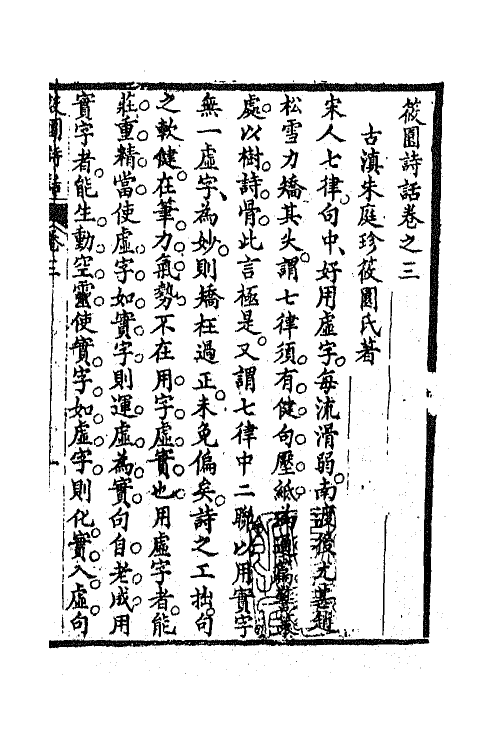 筱園詩話卷之三
古滇朱庭珍筱園氏著
宋人七律句中好用虛字每流滑弱南渡後尤甚趙
松雪力矯其失謂七律須有健句壓紙為通篇警策
處以樹詩骨此言極是又謂七律中二聯以用實字
無一虛字為妙則矯枉過正未免偏矣詩之工拙句
之軟健在筆力氣勢不在用字虛實也用虛字者能
莊重精當使虛字如實字則運虛為實句自老成用
實字者能生動空靈使實字如虛字則化實入虛句
筱園詩話 卷三 一